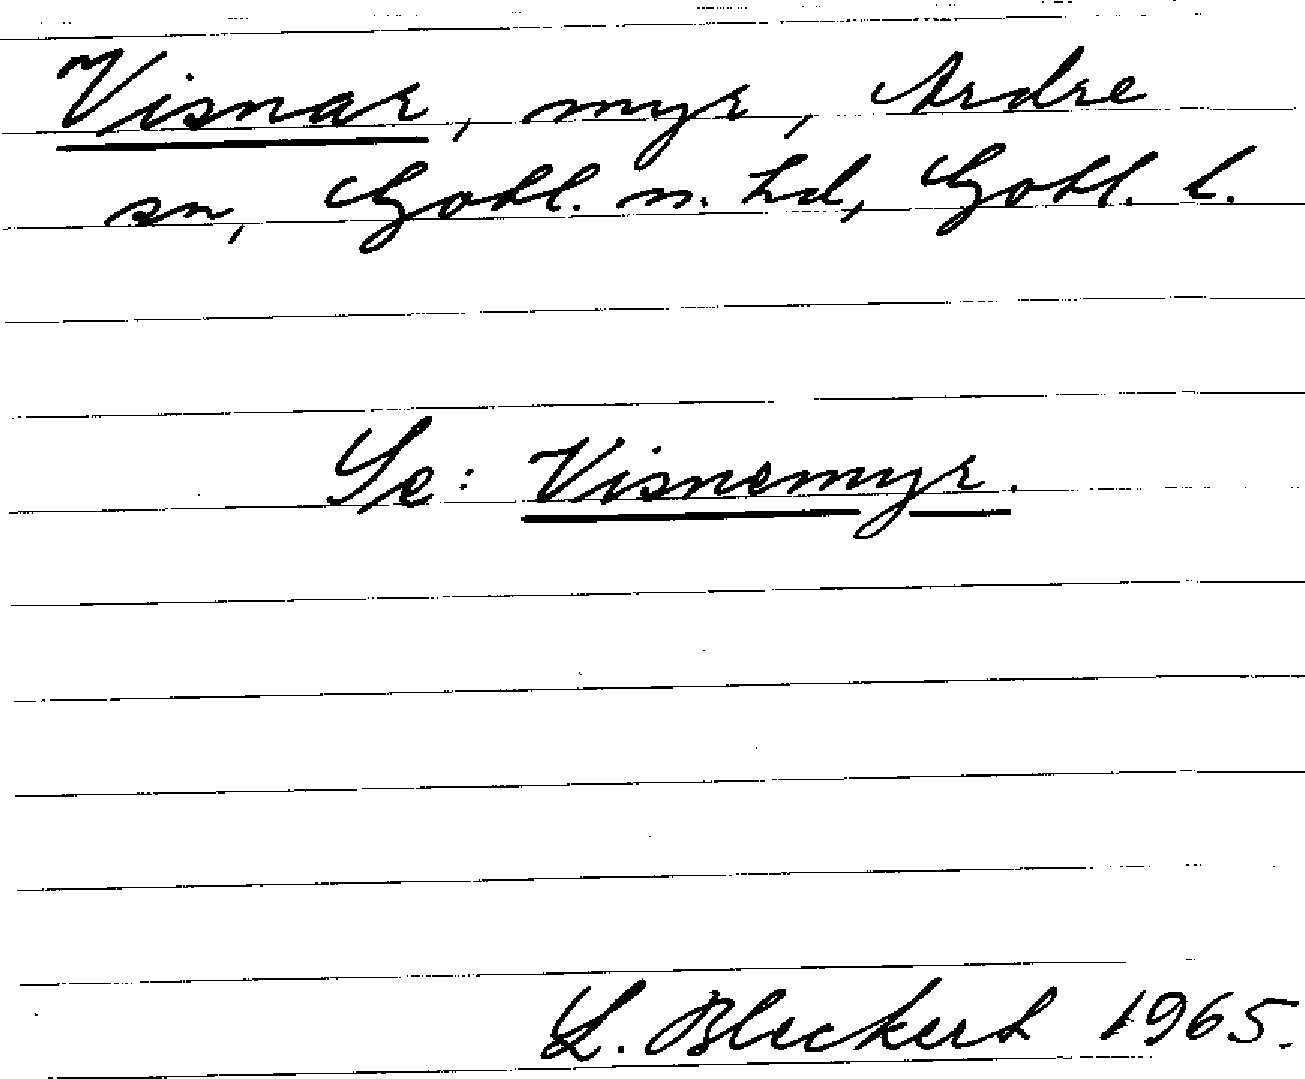 Visnar, myr, Ardre
sn, Gotl. n. hd, Gotl. l.
Se: Visnemyr.
L. Bleckert 1965.